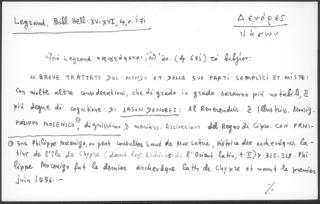 Legrand, Bibl. Hell. XV-XVI, 4, σ. 171
Δενόρες
Ἰάσων
Ὑπὸ Legrand
(4. 681) τὸ βιβλίον:
« BREVE TRATTATO DEL MONDO ET DELLE SUE PARTI SEMPLICI ET MISTE:
Con molte altre considerationi, che di grado in grado saranno più notabili, &
più degne di cognitione. DI JASON DENORES: Al Reverendiss. & Illustriss. Monsig.
PHILIPPO MOCENICO, dignissimo, & meritiss. Arcivescovo del Regno di Cipro. CON PRIVI-
① Sur Philippe Mocenigo, on peut consulter Louis de Mas Latrie, Histoire des archevêques la-
tins de l'île de Chypre (dans les Archives de l'Orient latin, t. II) p. 325-328. Phi-
lippe Mocenigo fut le dernier archevêque latin de Chypre et mourut le premier
juin 1586.—